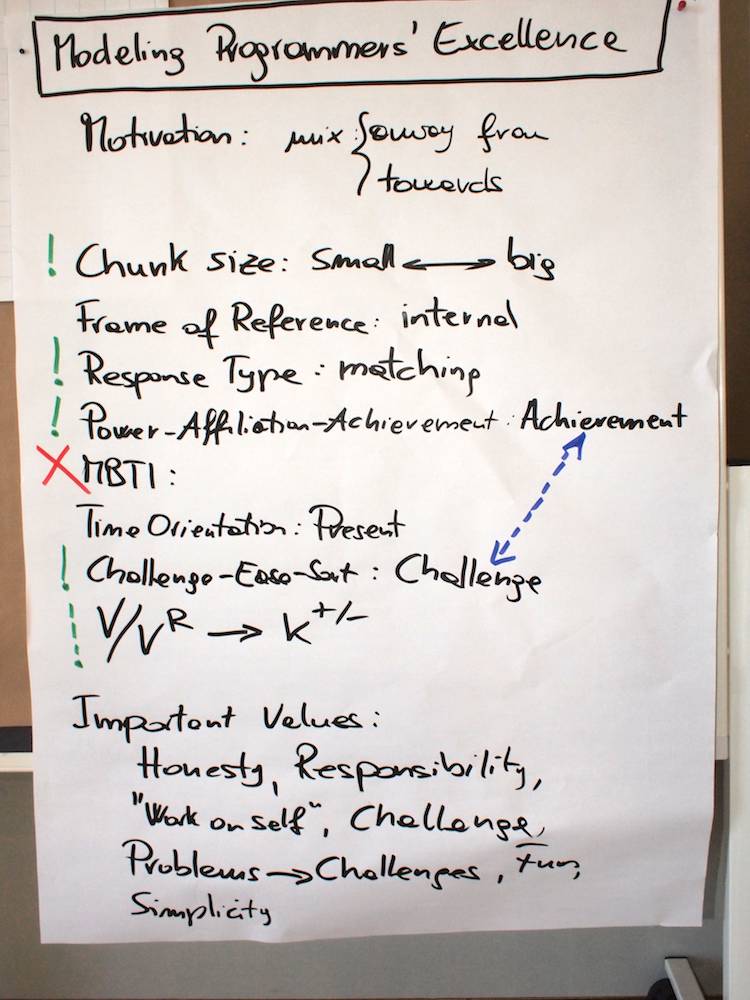 Modeling Programmers' Excellence
Motivation: mix { away from
towards
! Chunk size: Small ⟷ big
Frame of Reference: internal
! Response Type: matching
! Power-Affiliation-Achievement: Achievement
X MBTI:
Time Orientation: Present
! Challenge-Ease-Sort: Challenge
! V/V^R → K^+/-
Important Values:
Honesty, Responsibility,
"Work on self", Challenge,
Problems → Challenges, Fun,
Simplicity